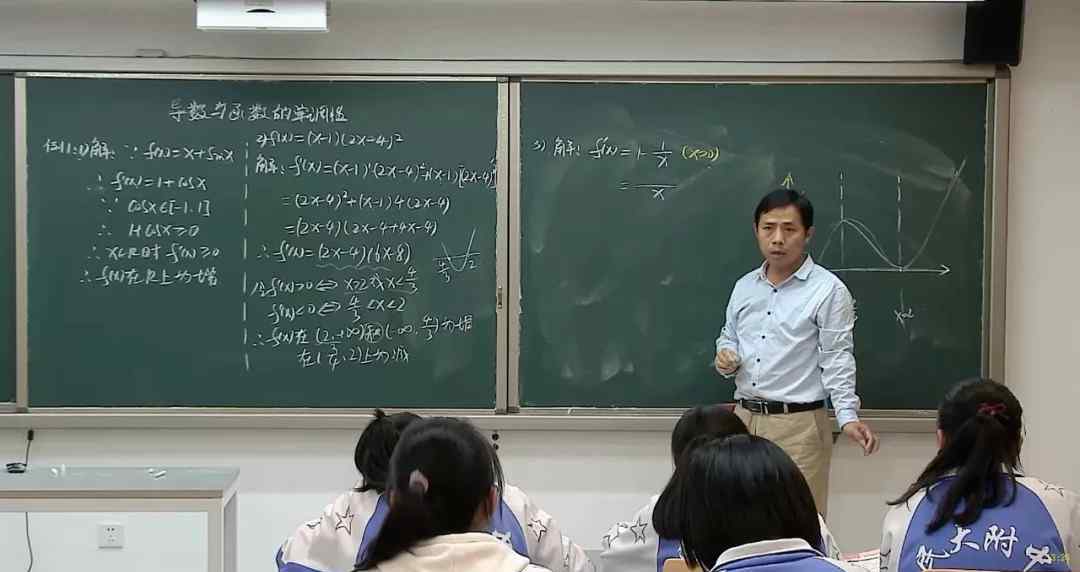 导数与函数的单调性
例1:(1)解:∵ f(x)=x+sinx
∴ f'(x)=1+cosx
∵ cosx∈[-1,1]
∴ 1+cosx≥0
∴ x∈R时 f'(x)≥0
∴ f(x)在R上为增
2) f(x)=(x-1)(2x-4)²
解:f'(x)=(x-1)'(2x-4)²+(x-1)[(2x-4)²]'
=(2x-4)²+(x-1)4(2x-4)
=(2x-4)(2x-4+4x-4)
∴ f'(x)=(2x-4)(6x-8)
令f'(x)>0⇔x>2或x<4/3
f'(x)<0⇔4/3<x<2
∴ f(x)在(2,+∞)和(-∞,4/3)为增
在(3/4,2)上为减
4/3 2
3) 解:f'(x)=1-1/x (x>0)
= /x
大附